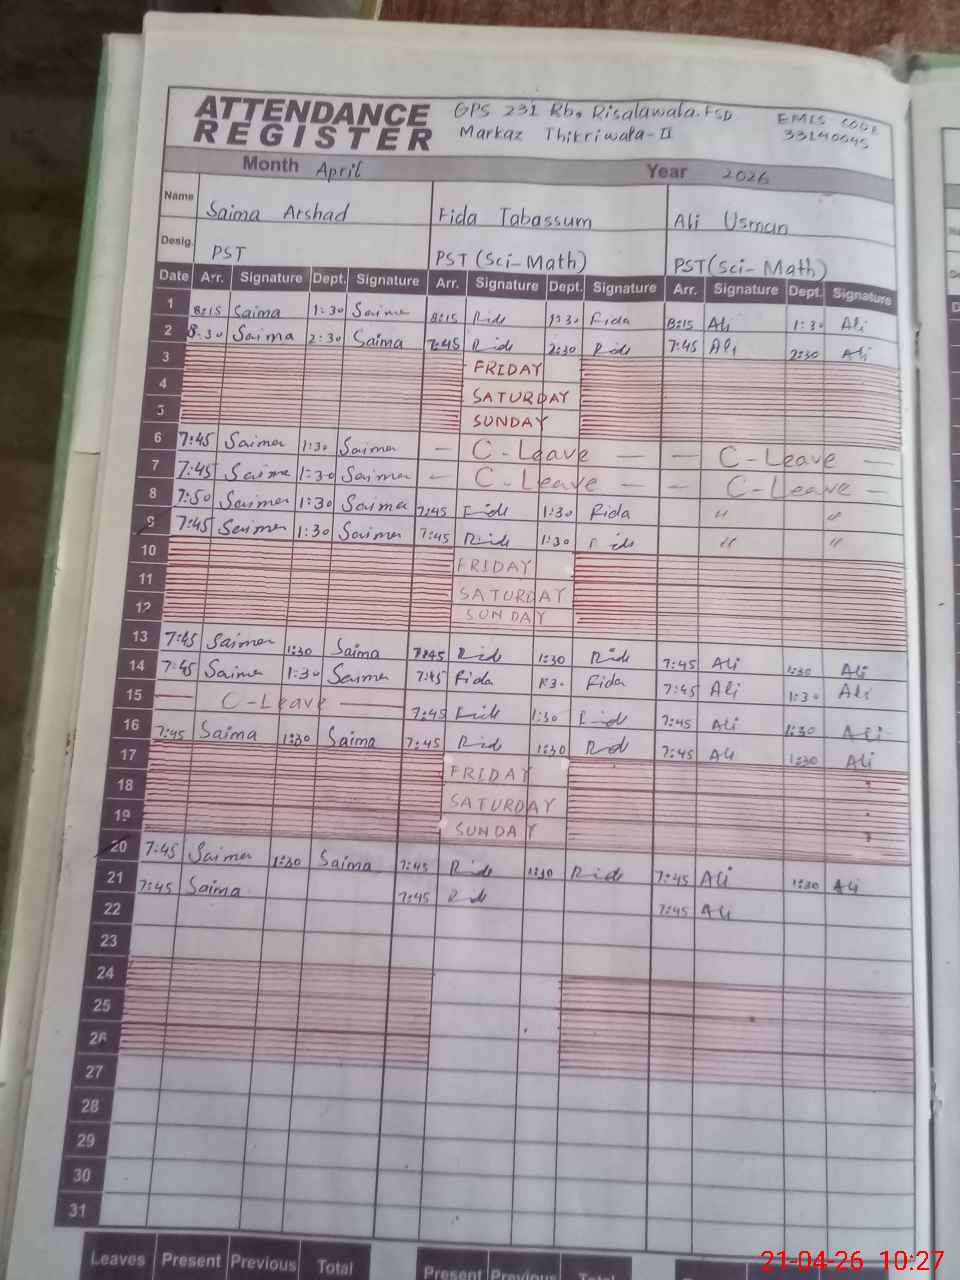 ATTENDANCE REGISTER
GPS 231 Rb, Risalawala.FSD
Markaz Thikriwala-II
EMIS CODE
33140045
Month April Year 2026
Name Saima Arshad Fida Tabassum Ali Usman
Desig. PST PST (Sci-Math) PST (Sci-Math)
Date Arr. Signature Dept. Signature Arr. Signature Dept. Signature Arr. Signature Dept. Signature
1 8:15 Saima 1:30 Saima 8:15 1:30 Fida 8:15 Ali 1:30 Ali
2 8:30 Saima 2:30 Saima 7:45 2:30 7:45 Ali 2:30 Ali
3 FRIDAY
4 SATURDAY
5 SUNDAY
6 7:45 Saima 1:30 Saima — C-Leave — — C-Leave —
7 7:45 Saima 1:30 Saima — C-Leave — — C-Leave —
8 7:50 Saima 1:30 Saima 7:45 Fida 1:30 Fida " "
9 7:45 Saima 1:30 Saima 7:45 1:30 " "
10 FRIDAY
11 SATURDAY
12 SUNDAY
13 7:45 Saima 1:30 Saima 7:45 1:30 7:45 Ali 1:30 Ali
14 7:45 Saima 1:30 Saima 7:45 Fida 1:30 Fida 7:45 Ali 1:30 Ali
15 — C-Leave — 7:45 1:30 7:45 Ali 1:30 Ali
16 7:45 Saima 1:30 Saima 7:45 1:30 7:45 Ali 1:30 Ali
17 FRIDAY
18 SATURDAY
19 SUNDAY
20 7:45 Saima 1:30 Saima 7:45 1:30 7:45 Ali 1:30 Ali
21 7:45 Saima 7:45 7:45 Ali
22
23
24
25
26
27
28
29
30
31
Leaves Present Previous Total Present Previous Total
21-04-26 10:27